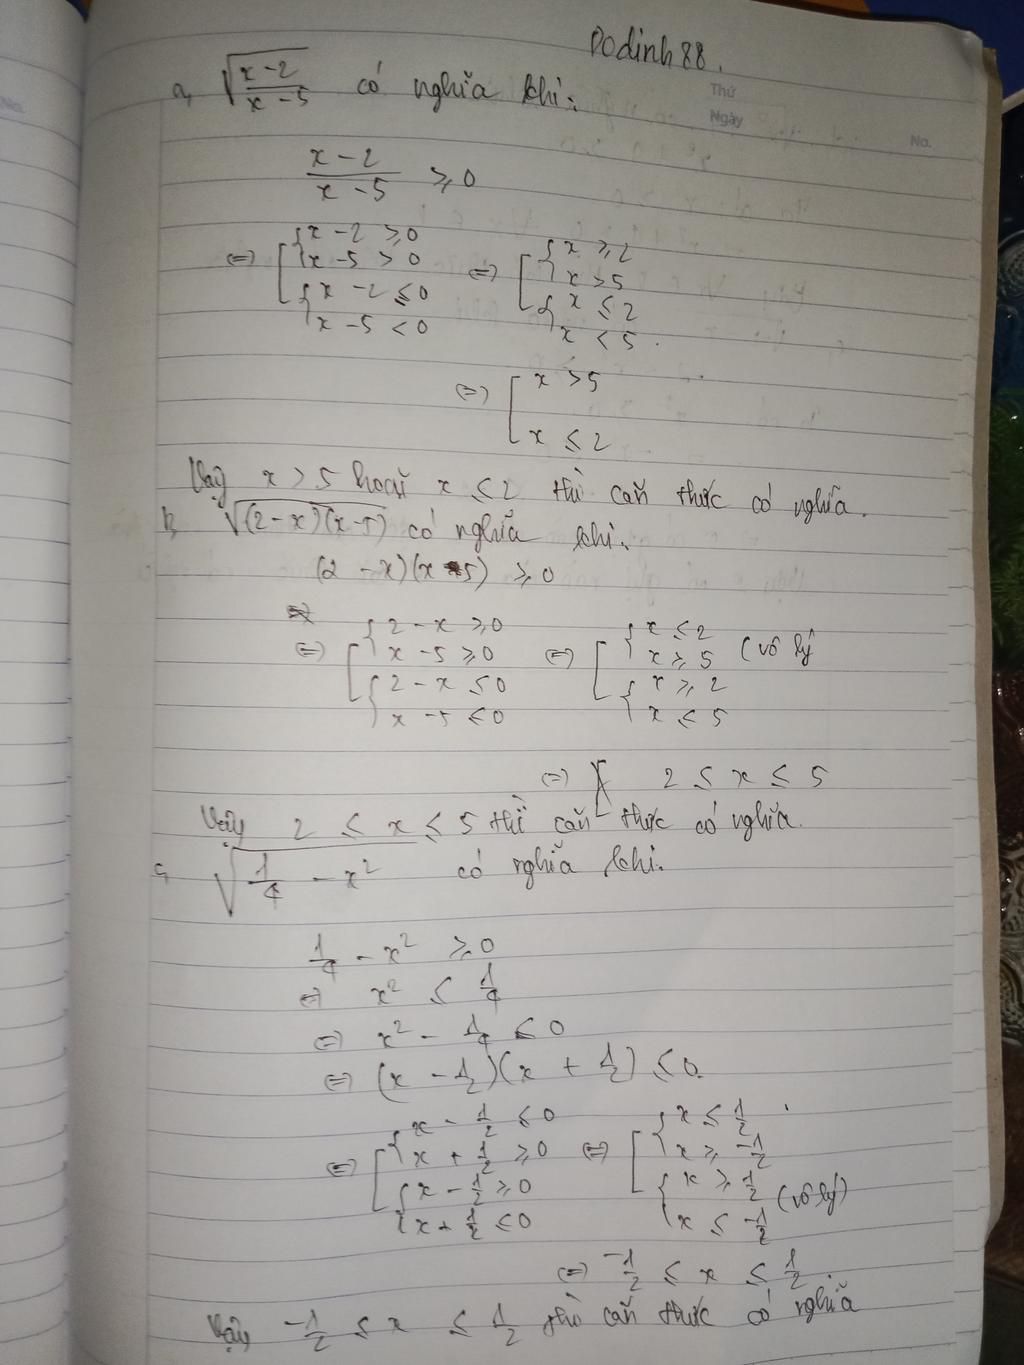 Dodinh88.
Thứ
Ngày
No.
No.
a, √((x-2)/(x-5)) có nghĩa khi:
(x-2)/(x-5) ≥ 0
⇔ [ { x-2 ≥ 0 ⇔ [ { x ≥ 2
{ x-5 > 0 { x > 5
{ x-2 ≤ 0 { x ≤ 2
{ x-5 < 0 { x < 5.
⇔ [ x > 5
x ≤ 2
Vậy x > 5 hoặc x ≤ 2 thì căn thức có nghĩa.
b, √((2-x)(x-5)) có nghĩa khi.
(2-x)(x-5) ≥ 0
⇔ [ { 2-x ≥ 0 ⇔ [ { x ≤ 2
{ x-5 ≥ 0 { x ≥ 5 (vô lý
{ 2-x ≤ 0 { x ≥ 2
{ x-5 ≤ 0 { x ≤ 5
⇔ 2 ≤ x ≤ 5
Vậy 2 ≤ x ≤ 5 thì căn thức có nghĩa.
c, √(1/4 - x²) có nghĩa khi.
1/4 - x² ≥ 0
⇔ x² ≤ 1/4
⇔ x² - 1/4 ≤ 0
⇔ (x - 1/2)(x + 1/2) ≤ 0.
⇔ [ { x - 1/2 ≤ 0 ⇔ [ { x ≤ 1/2
{ x + 1/2 ≥ 0 { x ≥ -1/2
{ x - 1/2 ≥ 0 { x ≥ 1/2
{ x + 1/2 ≤ 0 { x ≤ -1/2 (vô lý)
⇔ -1/2 ≤ x ≤ 1/2.
Vậy -1/2 ≤ x ≤ 1/2 thì căn thức có nghĩa